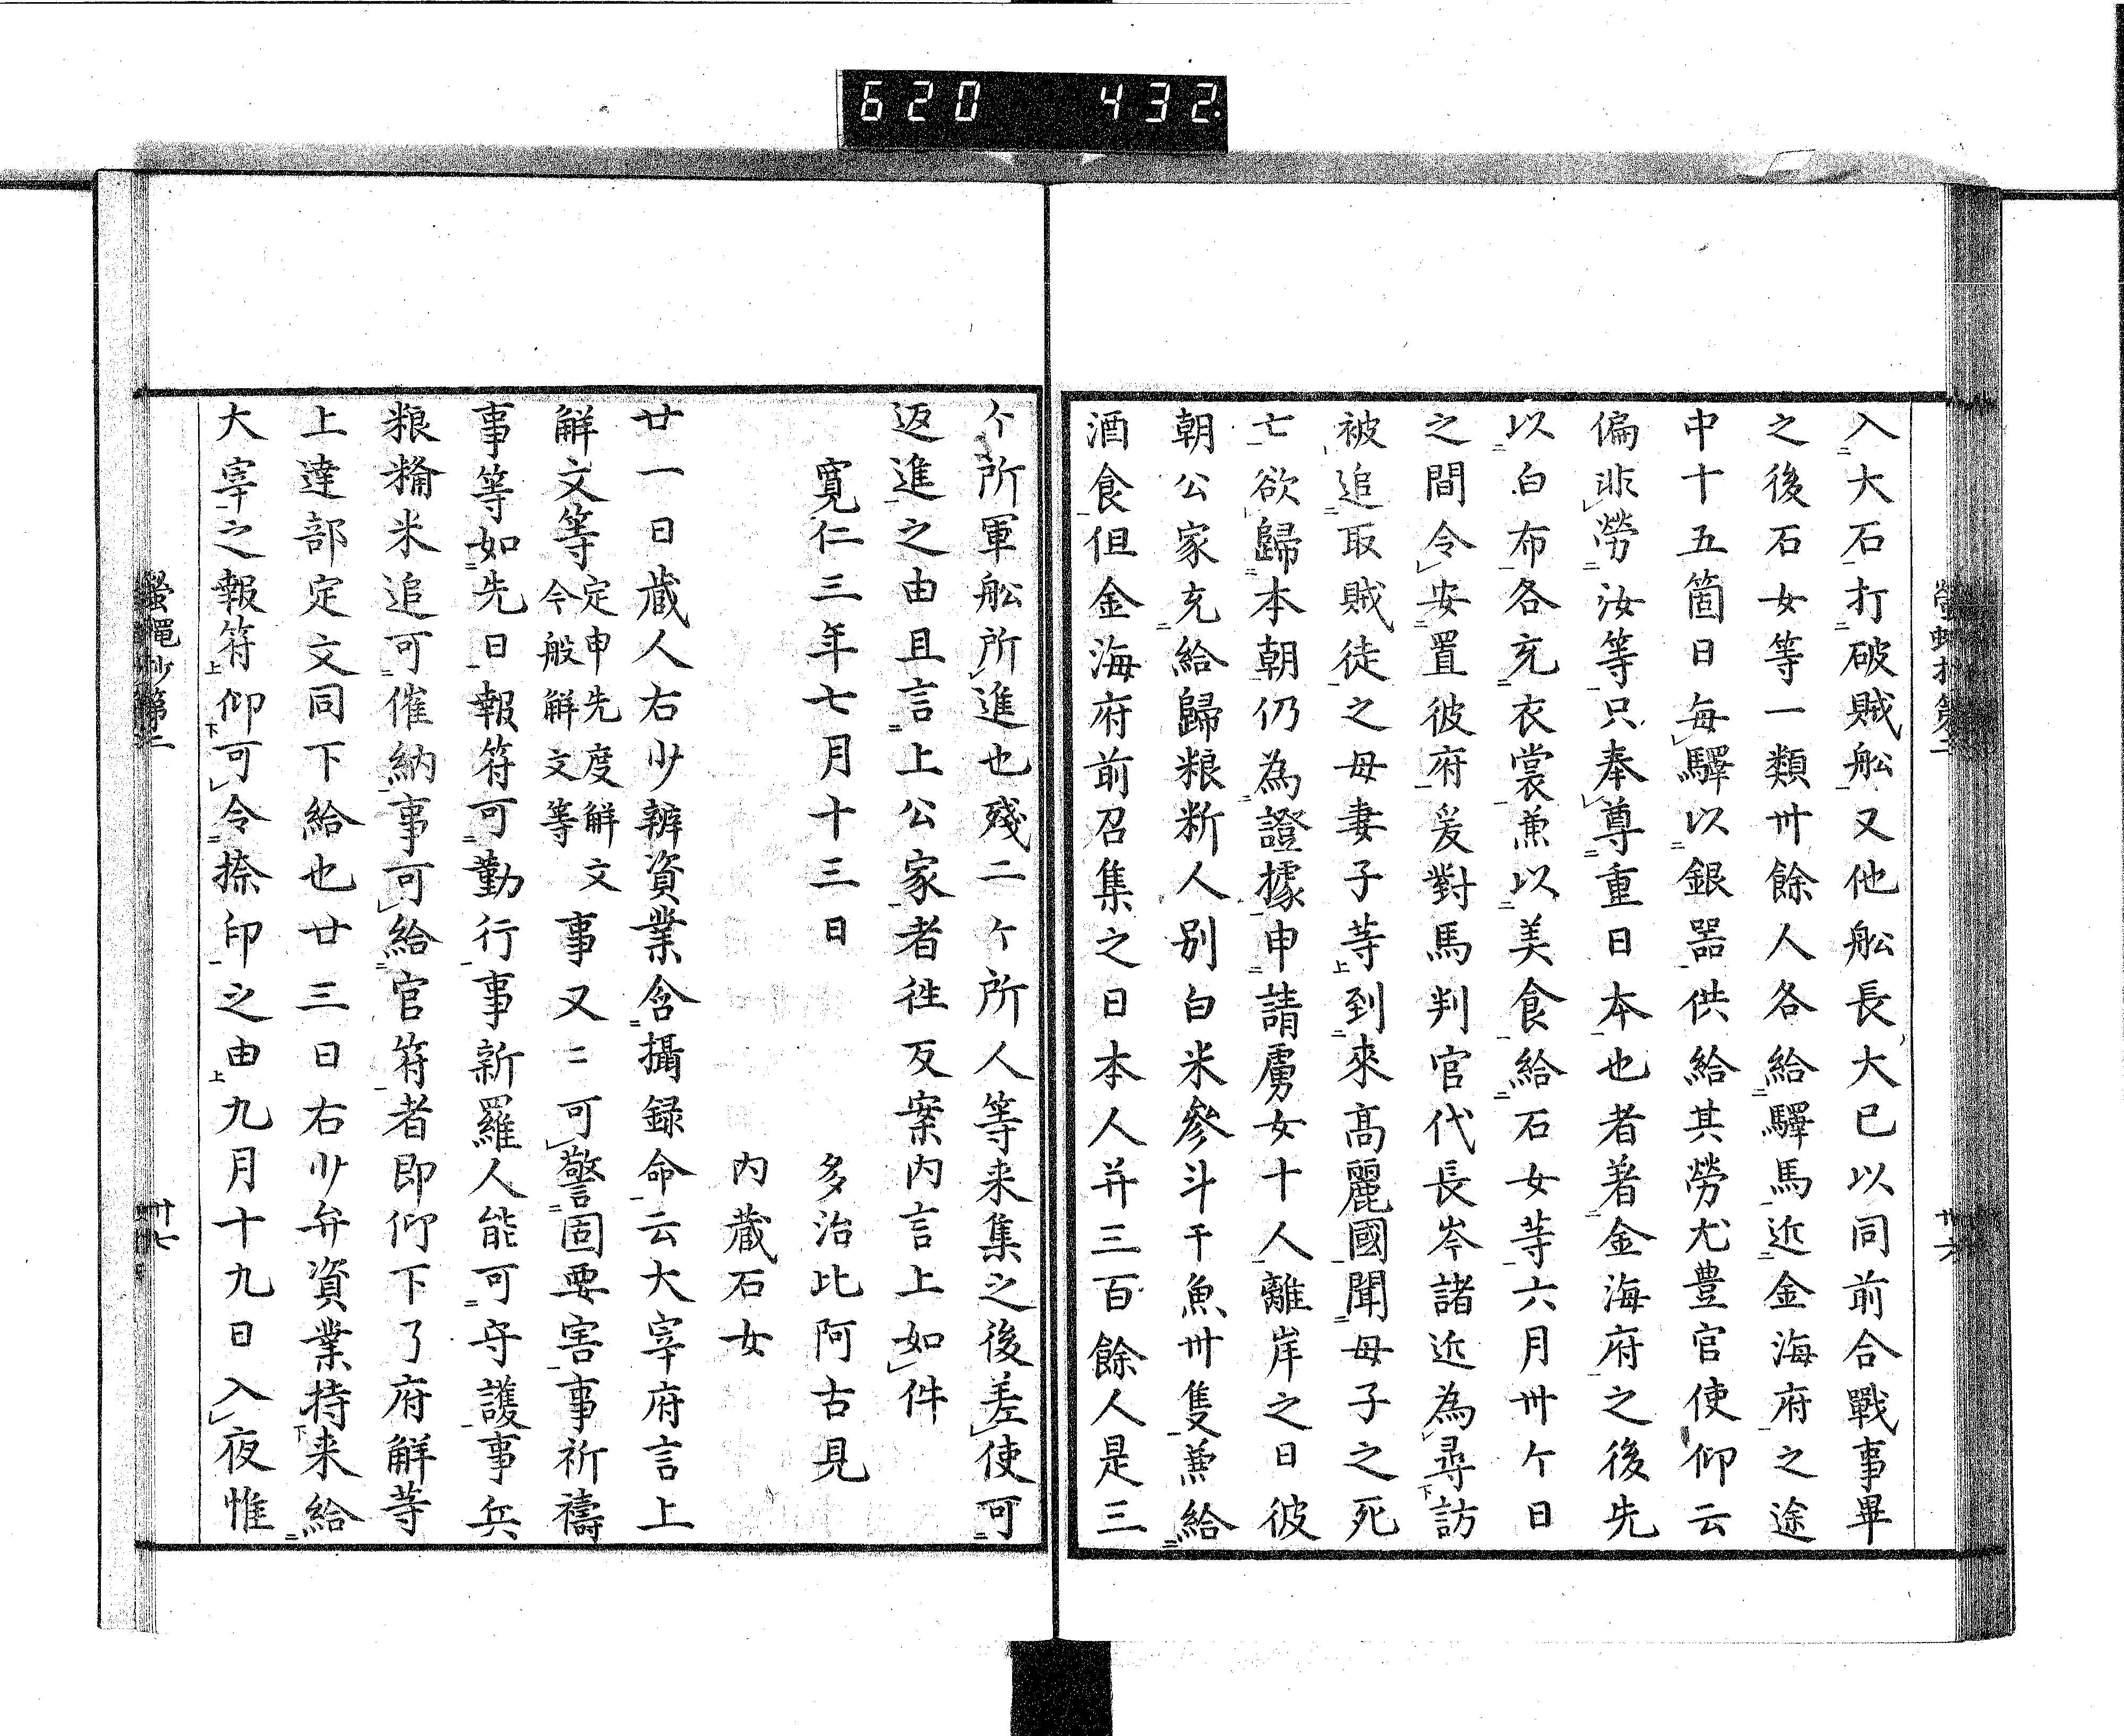 620 432
入大石打破賊舩又他舩長大已以同前合戰事畢
之後石女等一類卅餘人各給驛馬近金海府之途
中十五箇日毎驛以銀器供給其勞尤豊官使仰云
偏非勞汝等只奉尊重日本也者着金海府之後先
以白布各充衣裳兼以美食給石女等六月卅ケ日
之間令安置彼府爰對馬判官代長岑諸近為尋訪
被追取賊徒之母妻子等到來高麗國聞母子之死
亡欲歸本朝仍為證據申請虜女十人離岸之日彼
朝公家充給歸粮斷人別白米參斗干魚卅隻兼給
酒食但金海府前召集之日本人并三百餘人是三
ケ所軍舩所進也殘二ケ所人等来集之後差使可
返進之由且言上公家者徃反案内言上如件
寛仁三年七月十三日 多治比阿古見
内蔵石女
廿一日蔵人右少辨資業含攝録命云大宰府言上
解文等定申先度解文今般解文等事又〻可警固要害事祈禱
事等如先日報符可勤行事新羅人能可守護事兵
粮糒米追可催納事可給官符者即仰下了府解等
上達部定文同下給也廿三日右少弁資業持来給
大宰之報符仰可令捺印之由九月十九日入夜惟
螢蠅抄第二
卅六
螢蠅抄第二
卅七